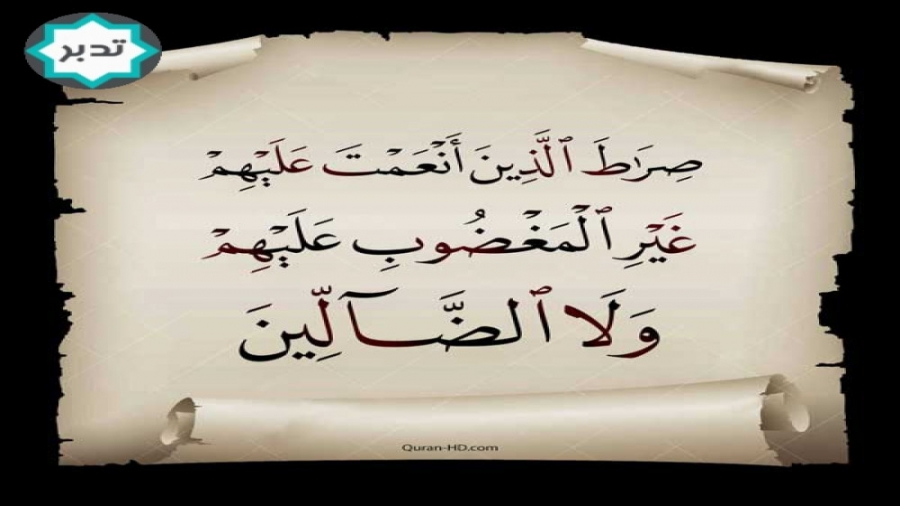 تدبر
صِرَٰطَ ٱلَّذِينَ أَنْعَمْتَ عَلَيْهِمْ
غَيْرِ ٱلْمَغْضُوبِ عَلَيْهِمْ
وَلَا ٱلضَّآلِّينَ
Quran-HD.com